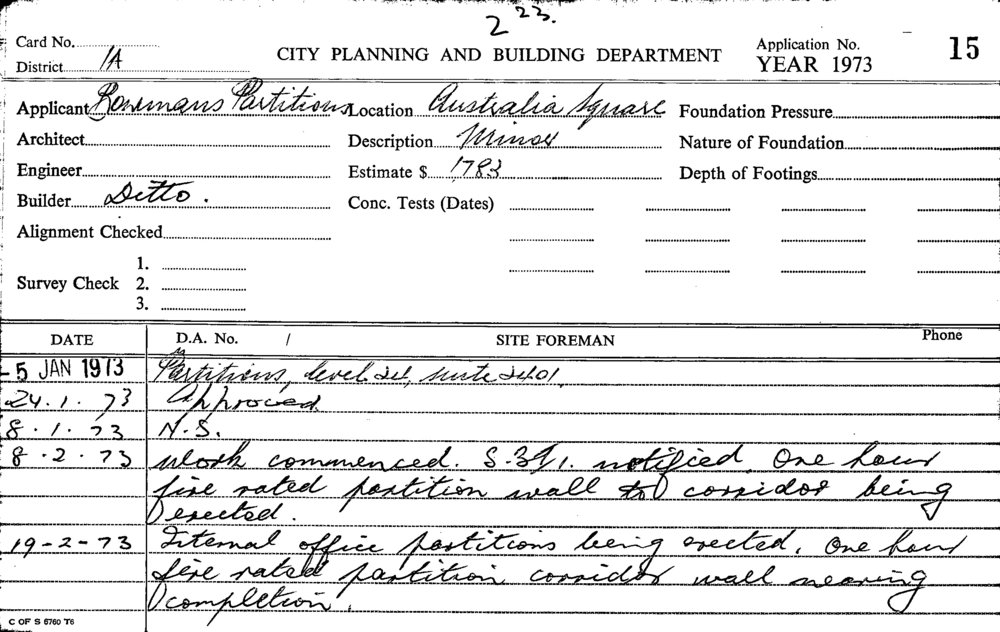 2 23.
Card No.
District 1A
CITY PLANNING AND BUILDING DEPARTMENT
Application No.
YEAR 1973
15
Applicant Bowmans Partitions
Location Australia Square
Foundation Pressure
Architect
Description Minor
Nature of Foundation
Engineer
Estimate $ 1783
Depth of Footings
Builder Ditto.
Conc. Tests (Dates)
Alignment Checked
Survey Check 1.
2.
3.
DATE D.A. No. / SITE FOREMAN Phone
-5 JAN 1973 Partitions, level 24, suite 2401.
24.1.73 Approved.
8.1.73 N.S.
8.2.73 Work commenced. notified. One hour
fire rated partition wall to corridor being
erected.
19-2-73 Internal office partitions being erected. One hour
fire rated partition corridor wall nearing
completion.
C OF S 6760 T6